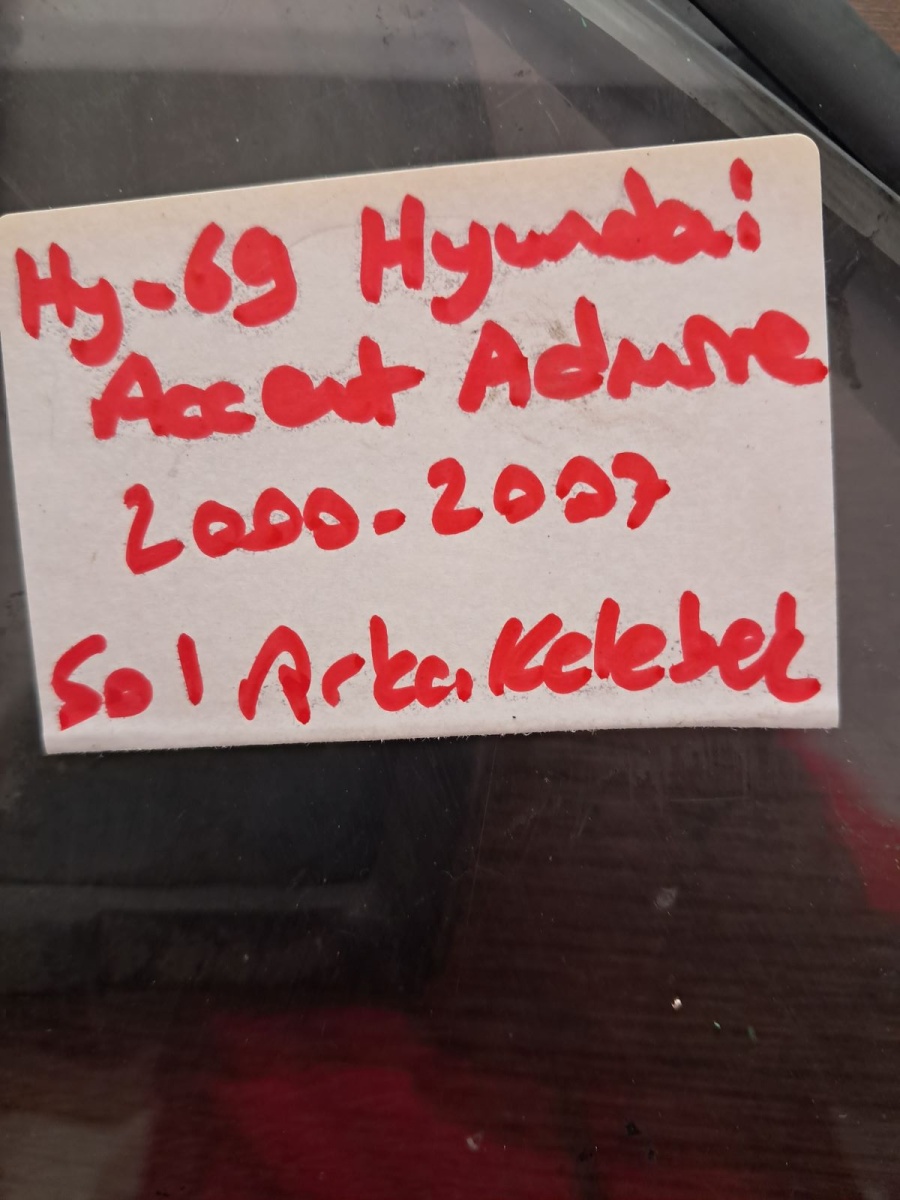 Hy-69 Hyundai
Accent Admire
2000-2007
Sol Arka Kelebek